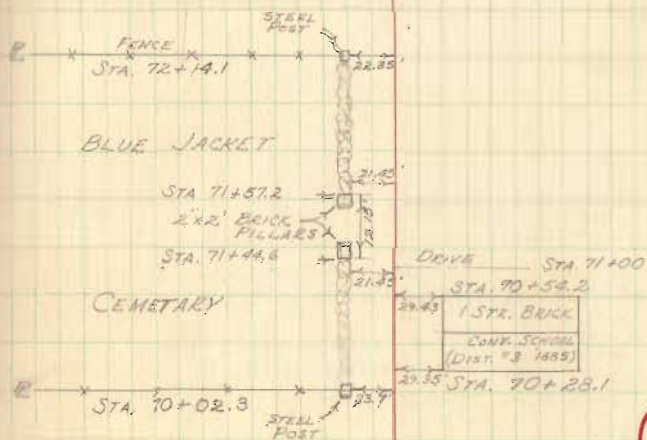 STEEL
POST
FENCE
STA. 72+14.1
22.35
BLUE JACKET
21.43
STA 71+57.2
2'x2' BRICK
PILLARS
12.15'
STA. 71+44.6
21.43
DRIVE STA. 71+00
STA. 70+54.2
29.43
1 STR. BRICK
CEMETARY
CONV. SCHOOL
(DIST. #3 1885)
29.35
STA. 70+28.1
23.9
STA. 70+02.3
STEEL
POST